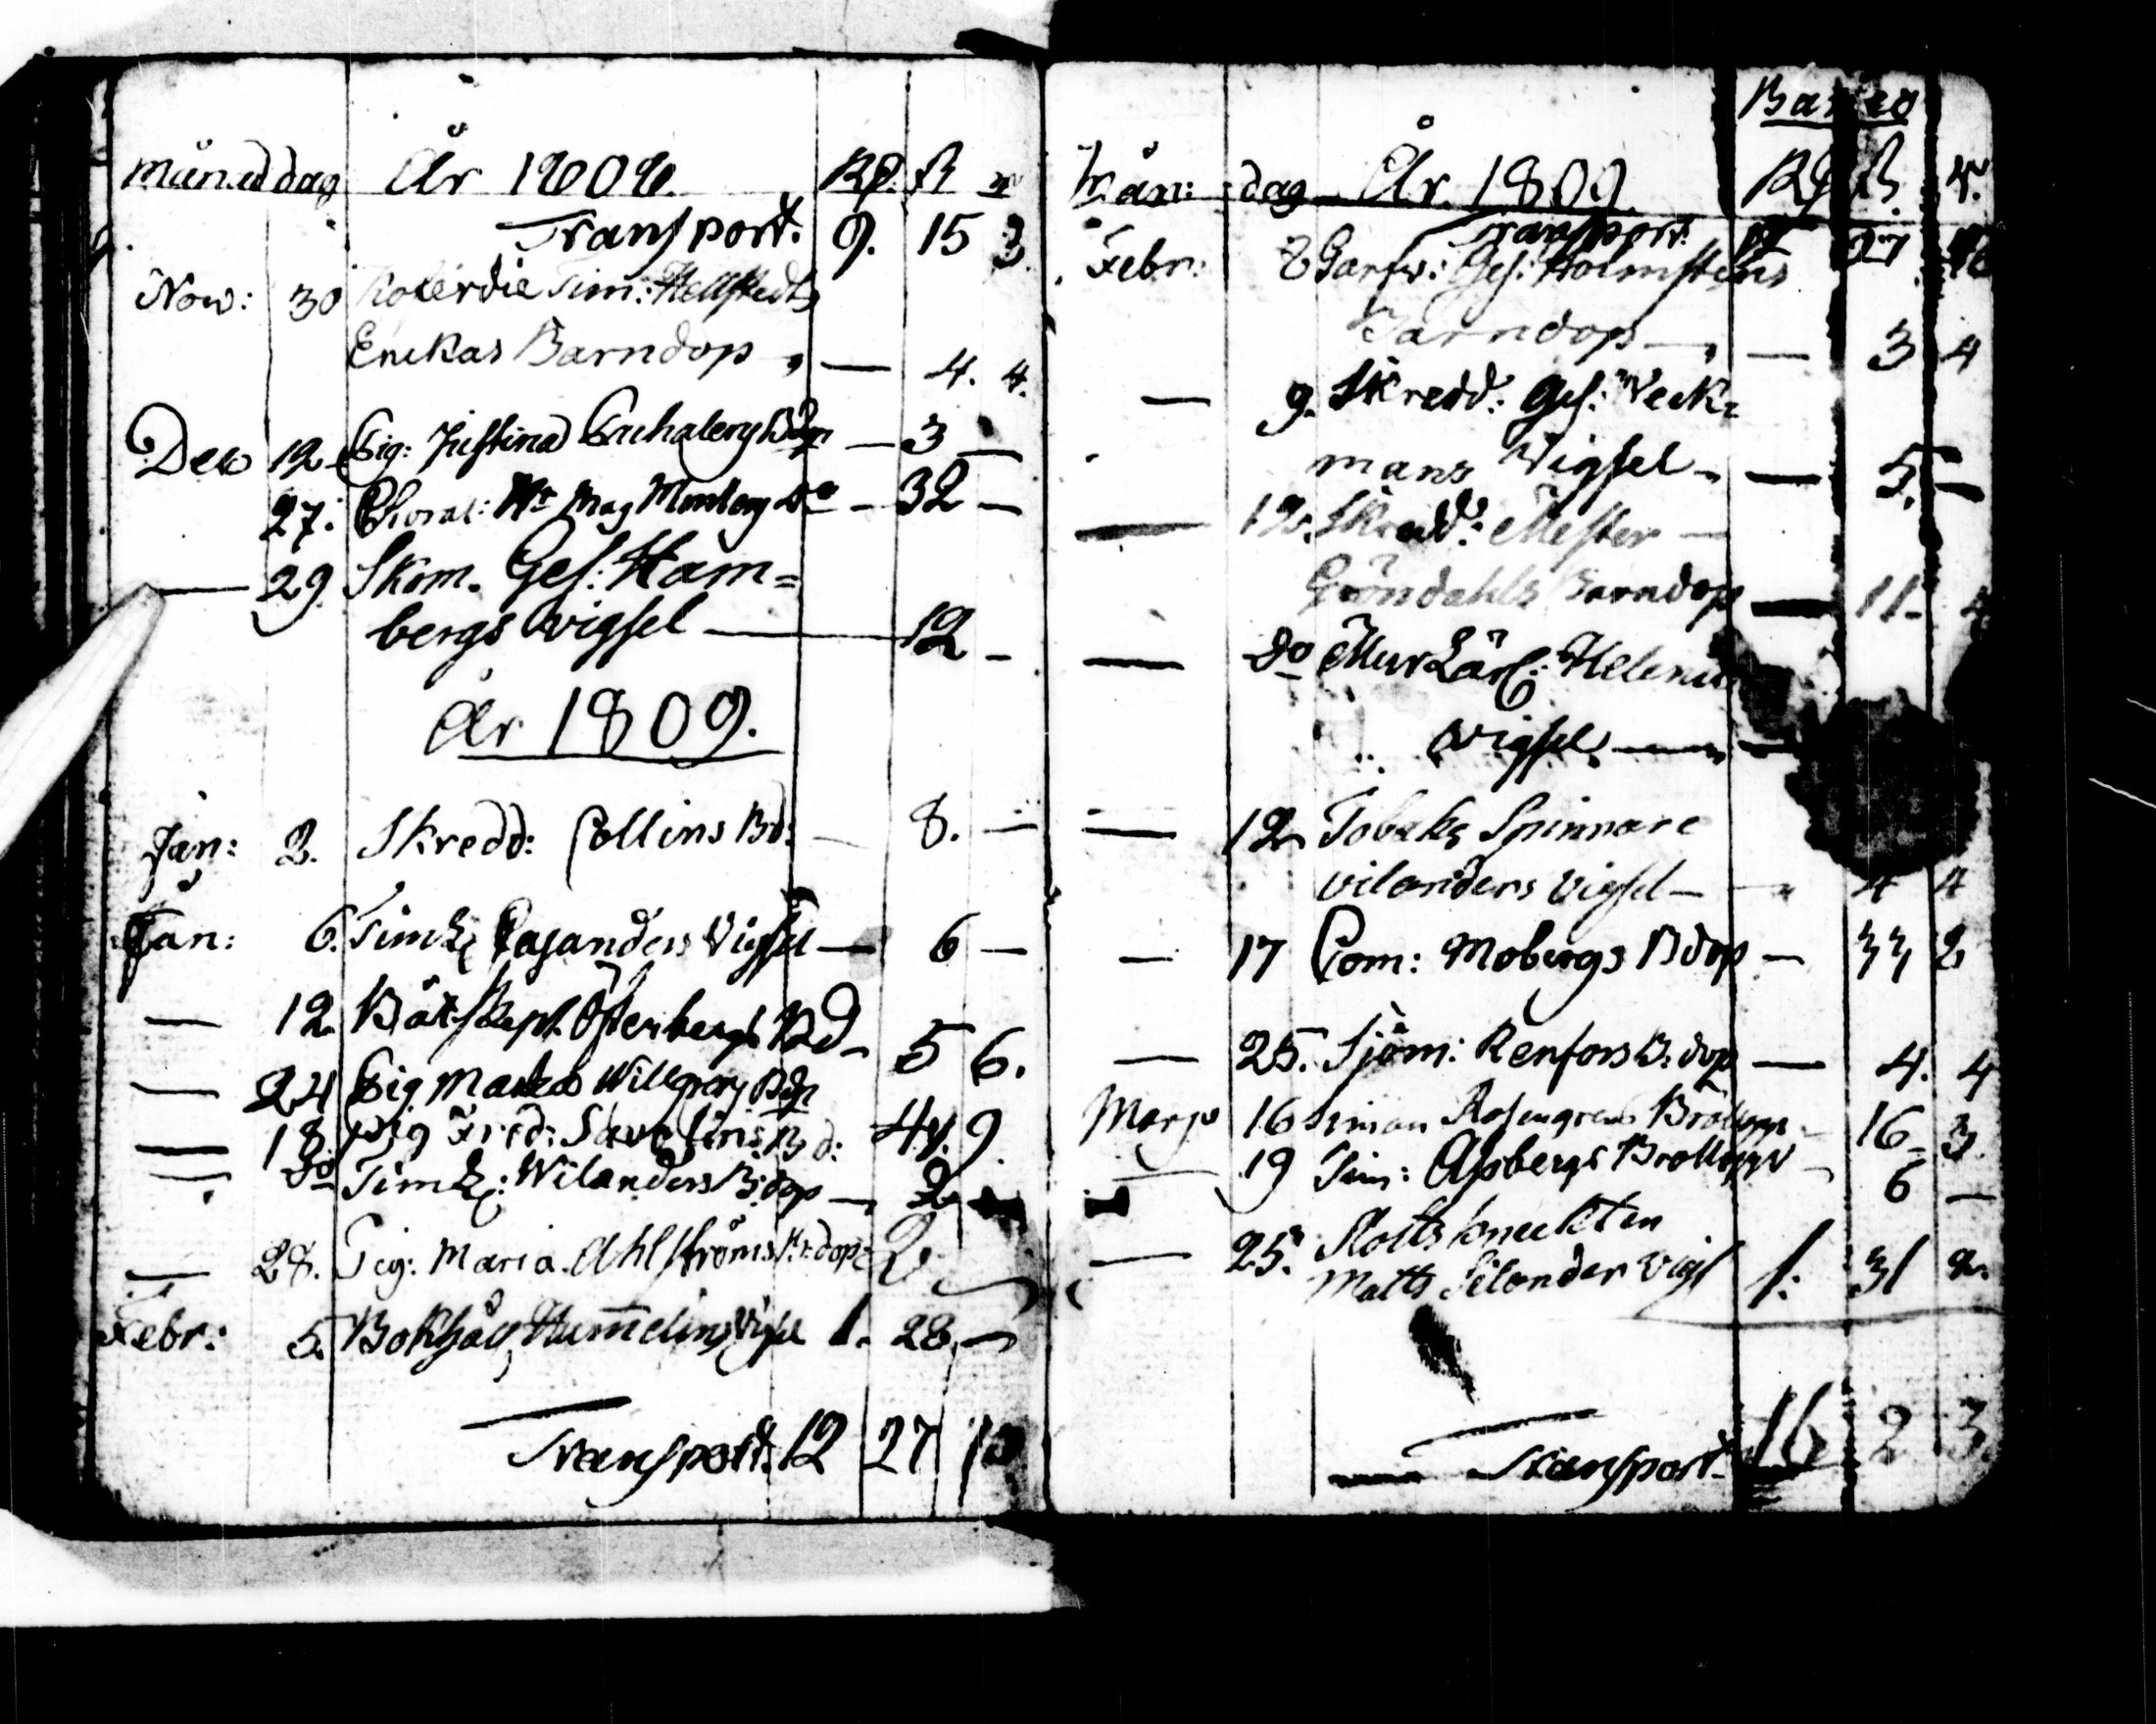 månad dag År 1808. Rd. ß r
Transport. 9. 15 3.
Nov: 30 Tim: Hellstedts
Erickas Barndop — 4. 4.
Dec 12 Pig: Justina — 3 —
27. Mag — 32 —
— 29. Skom. Ges: Ham=
bergs vigsel — 12 —
År 1809.
Jan: 2. Skredd: Collins Bd. — 8. —
Jan: 6. Timk Pasanders Vigsel — 6 —
— 12. Båtskept. Österbergs Bd — 5 6.
— 24 Pig
— 18 Pig Fred: Bd: 4. 9.
— do Timk: Wilanders B:dop — 2
— 28. Pig: Maria Ahlströms B:dop 2
Febr: 5. Bokhåll Hummelins Vigsel 1. 28. —
Transport. 12 27 10
Banco
Mån: dag År. 1809. Rd ß. r.
Transport. 12 27 10
Febr: 8 Garfv: Ges: Holmstens
Barndop — 3 4
— 9. Skredd: Ges: Veck=
mans Vigsel — 5. —
— 12. Skredd: Mester
Gröndahls Barndop — 11. 4
— do Mur Lärl: Helenii
vigsel —
— 12 Tobaks Spinnare
vilanders vigsel — 4 4
— 17 Com: Mobergs Bdop — 33 2
— 25. Sjöm: Renfors B:dop — 4. 4
Mars 16 Timan Rosengrens Bröllopp 16 3.
— 19 Tim: Asbergs Bröllopp 6 —
— 25. Slotts kneckten
Matts Silander Vigs 1. 31 2.
Transport. 16 2 3.